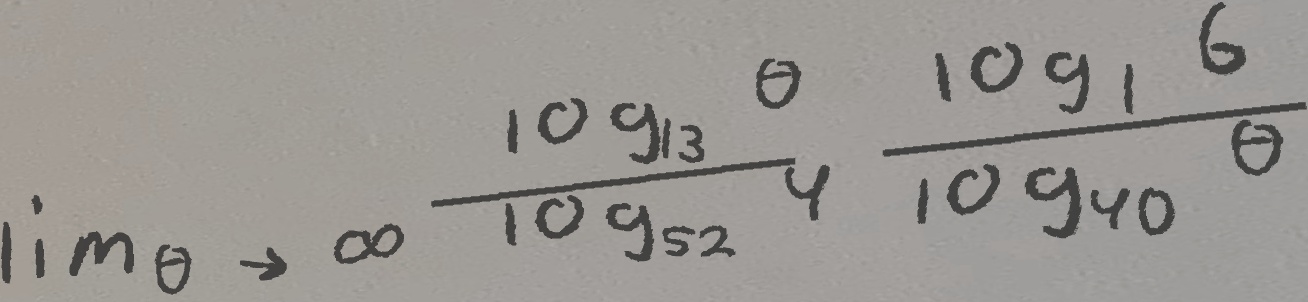 \lim_{\theta \to \infty} \frac{\log_{13} \theta}{\log_{52} 4} \frac{\log_{1} 6}{\log_{40} \theta}